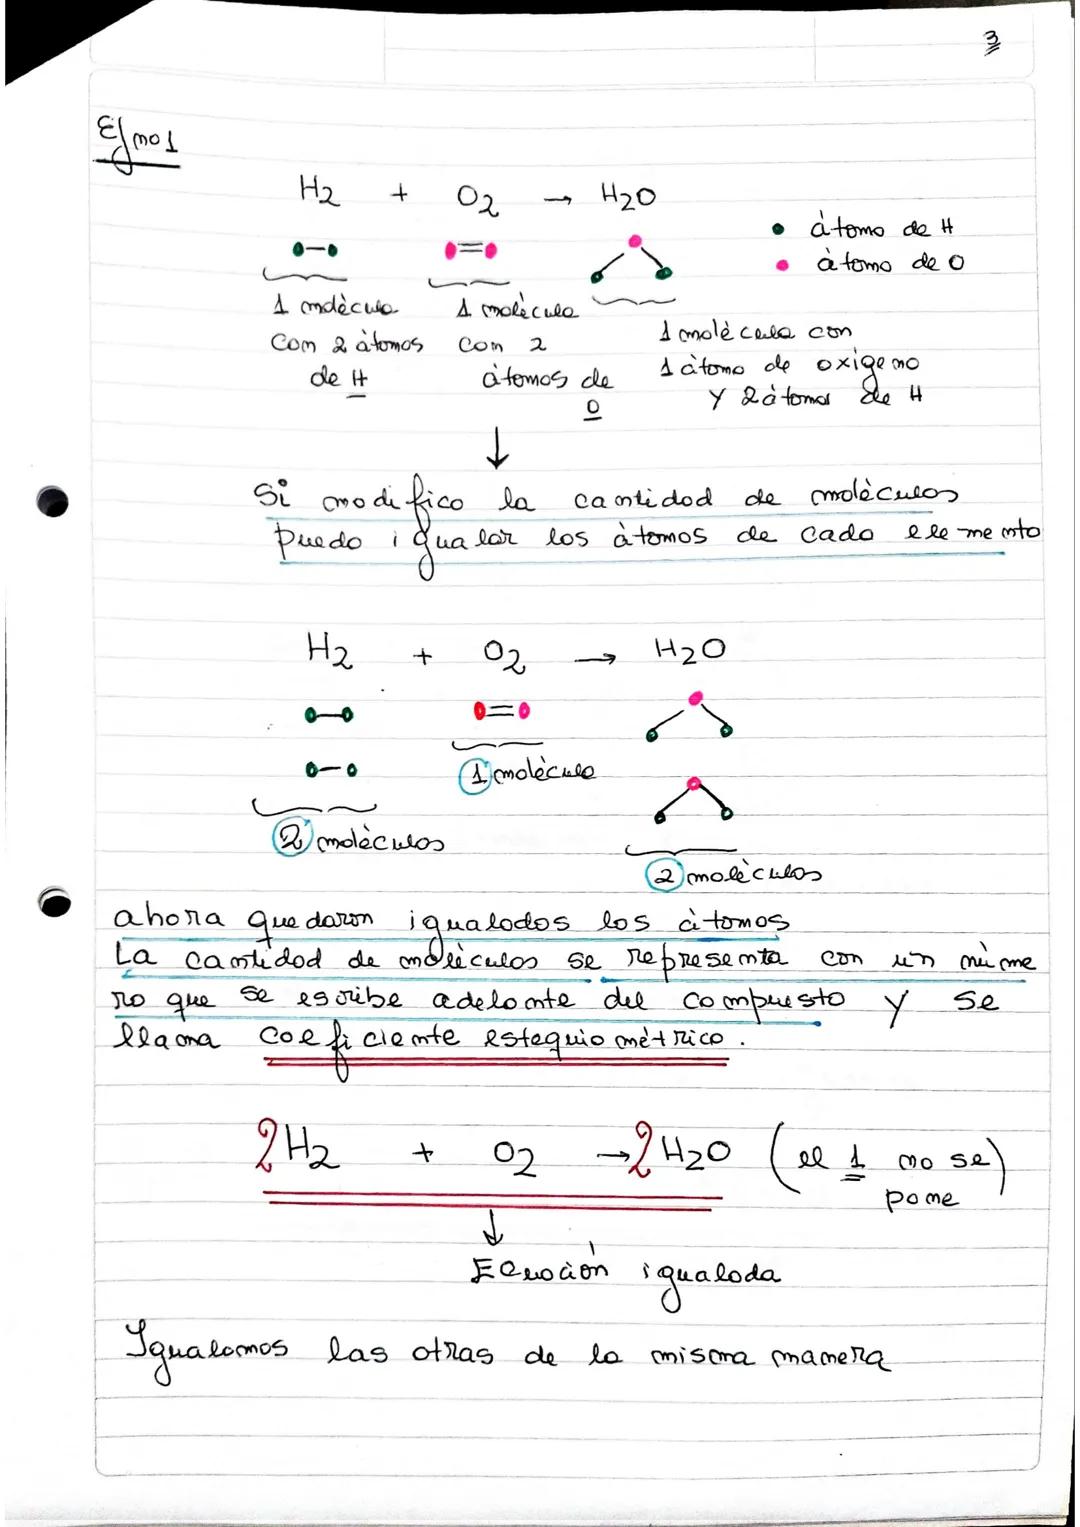 3
Ejmo1
H2 + O2 → H2O
• átomo de H
• átomo de O
1 molécula con 2 átomos de H
1 molécula con 2 átomos de O
1 molécula con 1 átomo de oxigeno y 2 átomos de H
↓
Si modifico la cantidad de moléculas
puedo igualar los átomos de cada elemento
H2 + O2 → H2O
1 molécula
2 moléculas
2 moléculas
ahora quedaron igualados los átomos
La cantidad de moléculas se representa con un núme
ro que se escribe adelante del compuesto y se
llama coeficiente estequiométrico.
2H2 + O2 → 2H2O (el 1 no se pone)
↓
Ecuación igualada
Igualamos las otras de la misma manera